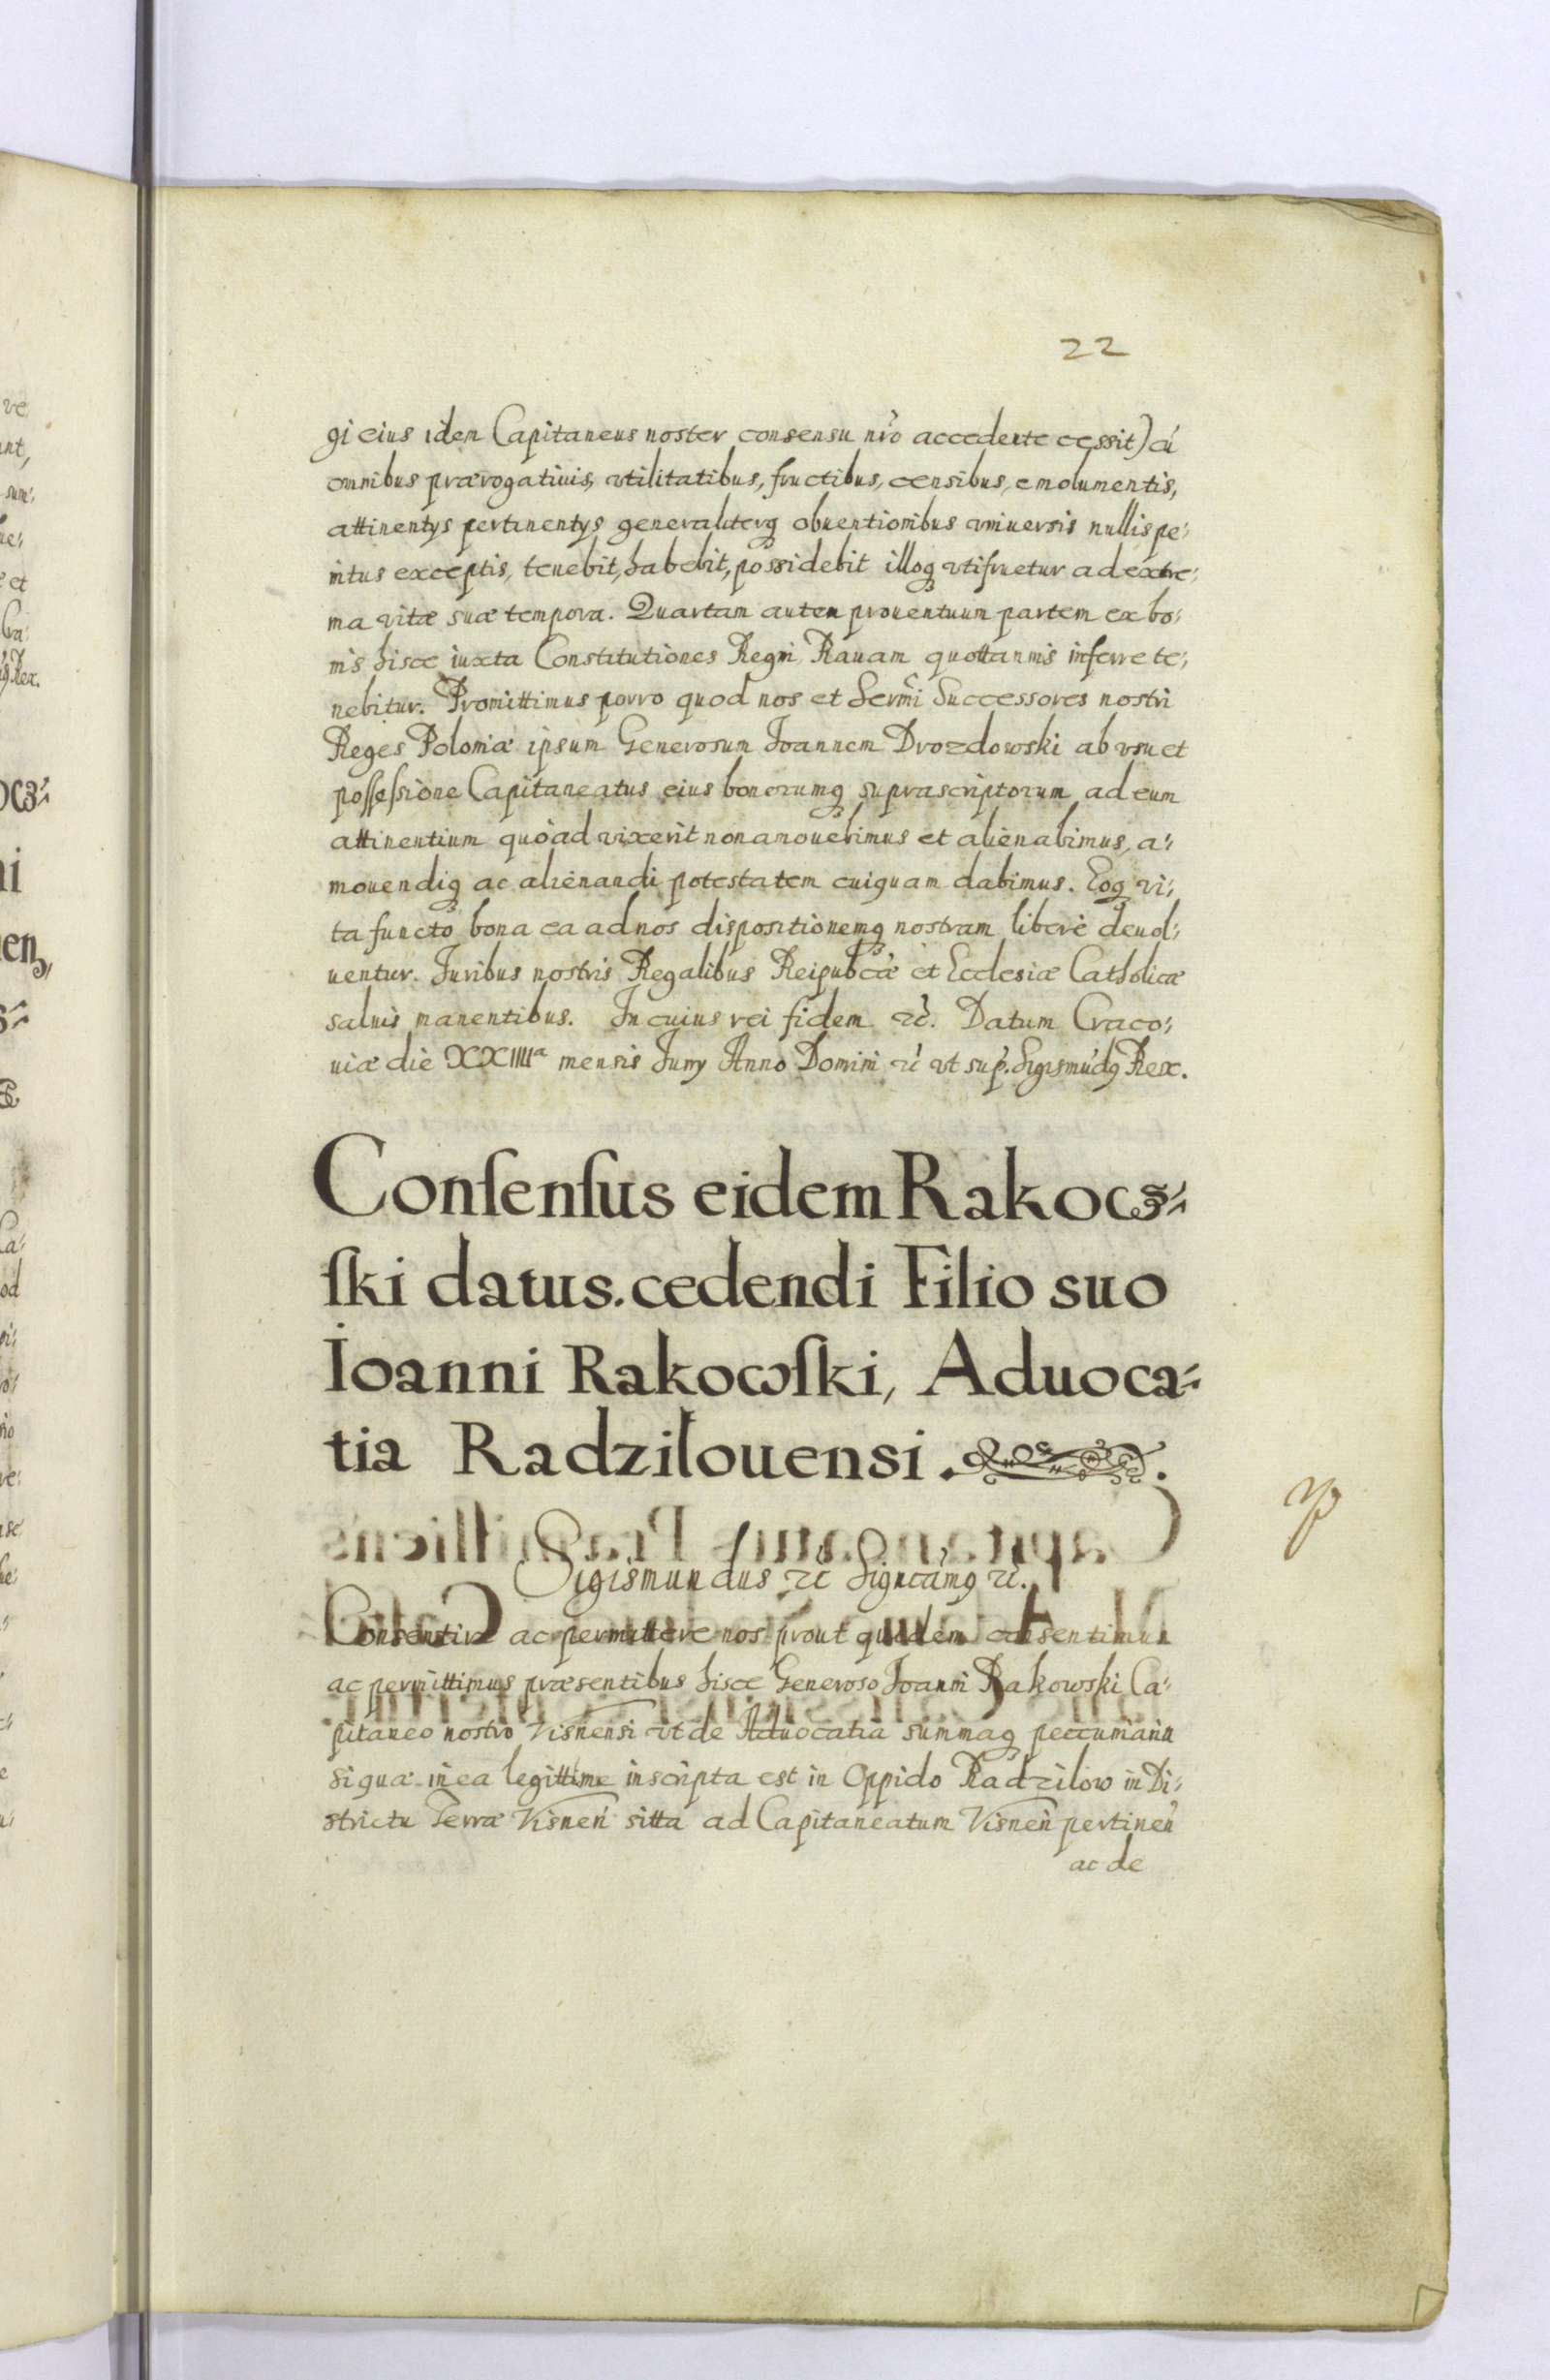 22
gi eius idem Capitaneus noster consensu nr̃o accedente cessit) cũ
omnibus prærogatiuis, vtilitatibus, fructibus, censibus, emolumentis,
attinentys pertinentys generaliterq obuentionibus vniuersis nullis pe:
nitus exceptis, tenebit, habebit, possidebit illoq vtifruetur ad extre:
ma vitæ suæ tempora. Quartam autem prouentuum partem ex bo:
nis hisce iuxta Constitutiones Regni Rauam quottannis inferre te:
nebitur. Promittimus porro quod nos et Sermi Successores nostri
Reges Poloniæ ipsum Generosum Joannem Drozdowski ab vsu et
possessione Capitaneatus eius bonorumq suprascriptorum ad eum
attinentium quoad vixerit non amouebimus et alienabimus, a:
mouendiq ac alienandi potestatem cuiquam dabimus. Eoq vi:
ta functo bona ea ad nos dispositionemq nostram libere deuol:
uentur. Juribus nostris Regalibus Reipubcæ et Ecclesiæ Catholicæ
saluis manentibus. In cuius rei fidem &c̃. Datum Craco:
uiæ die XXIIIIª mensis Juny Anno Domini &c̃ vt sup̃. Sigismũdq Rex.
Consensus eidem Rakow:
ski datus. cedendi Filio suo
Ioanni Rakowski, Aduoca:
tia Radzilouensi.
Sigismundus &c̃ Signcamq &c̃.
Consentire ac permittere nos prout quidem consentimus
ac permittimus præsentibus hisce Generoso Joanni Rakowski Ca:
pitaneo nostro Visnensi vt de Aduocatia summaq peccuniaria
si qua in ea legittime inscripta est in Oppido Radzilow in Di:
strictu Terræ Visneñ sitta ad Capitaneatum Visneñ pertineñ
ac de